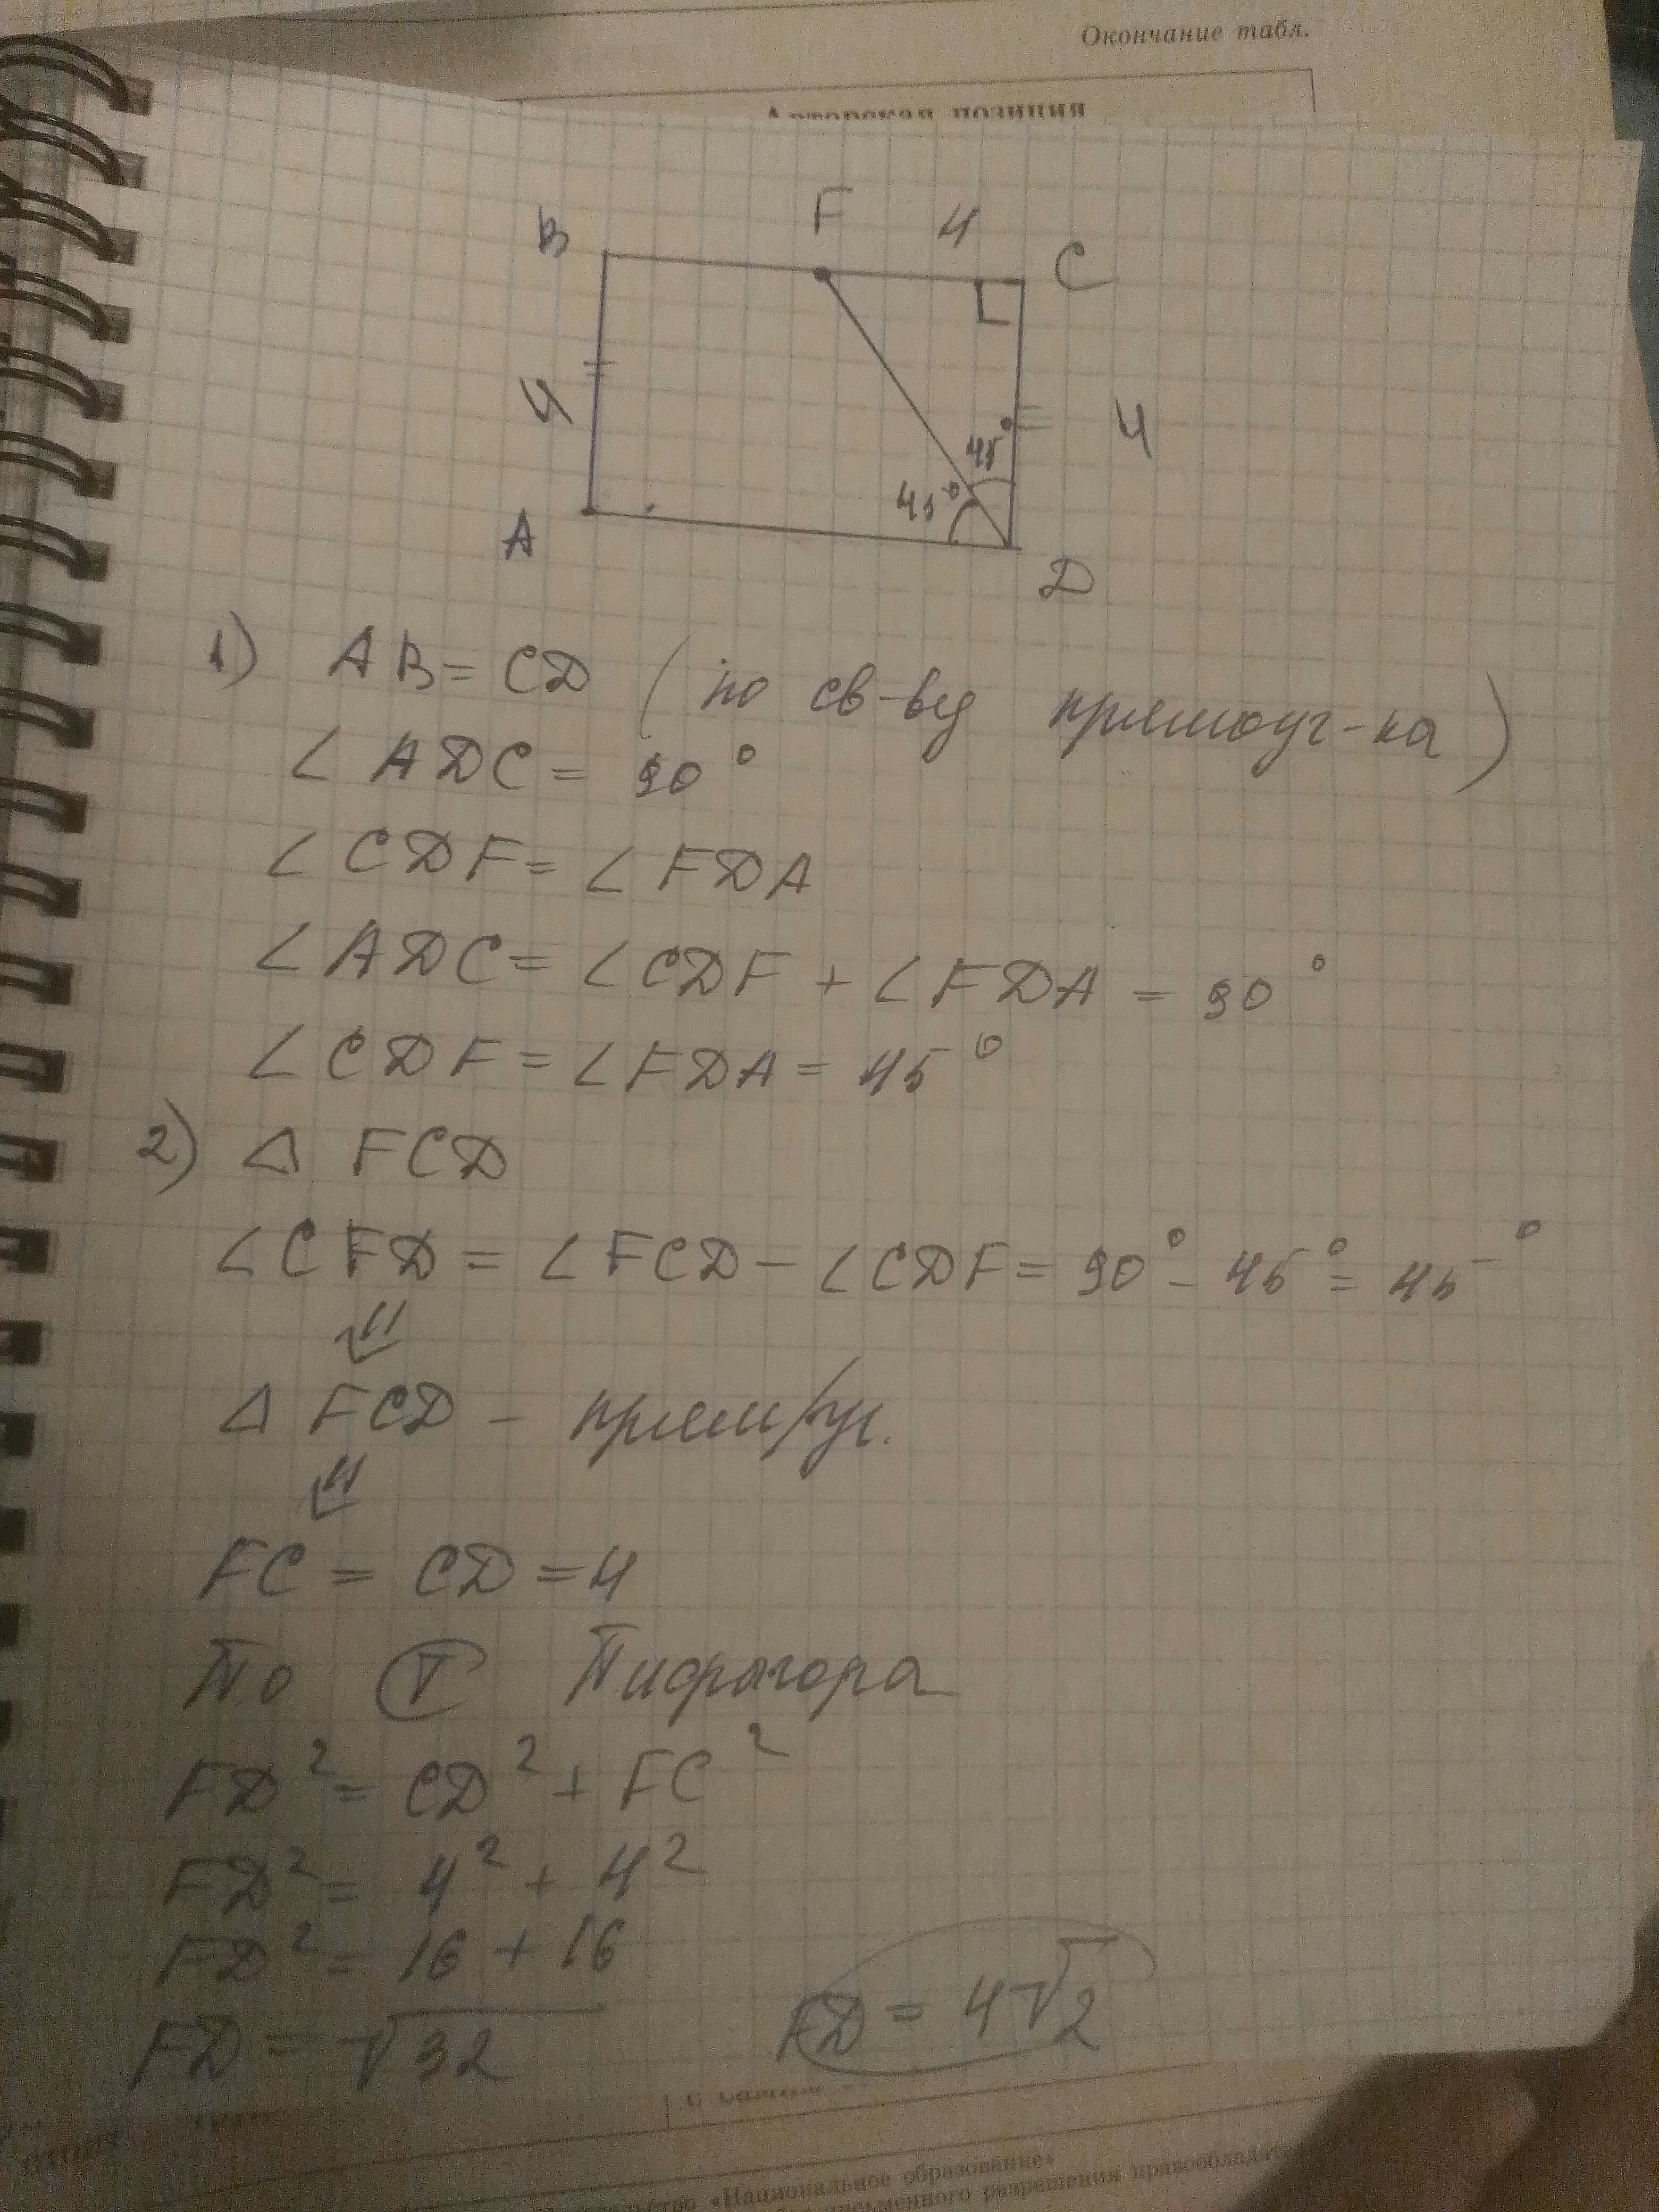 Окончание табл.
Авторская позиция
F 4
B C
4 4
45°
45°
A D
1) AB = CD (по св-ву прямоуг-ка)
∠ ADC = 90°
∠ CDF = ∠ FDA
∠ ADC = ∠ CDF + ∠ FDA = 90°
∠ CDF = ∠ FDA = 45°
2) △ FCD
∠ CFD = ∠ FCD - ∠ CDF = 90° - 45° = 45°
⇓
△ FCD - прям/уг.
⇓
FC = CD = 4
По Т Пифагора
FD² = CD² + FC²
FD² = 4² + 4²
FD² = 16 + 16
FD = √32 FD = 4√2
«Национальное образование»
письменного разрешения